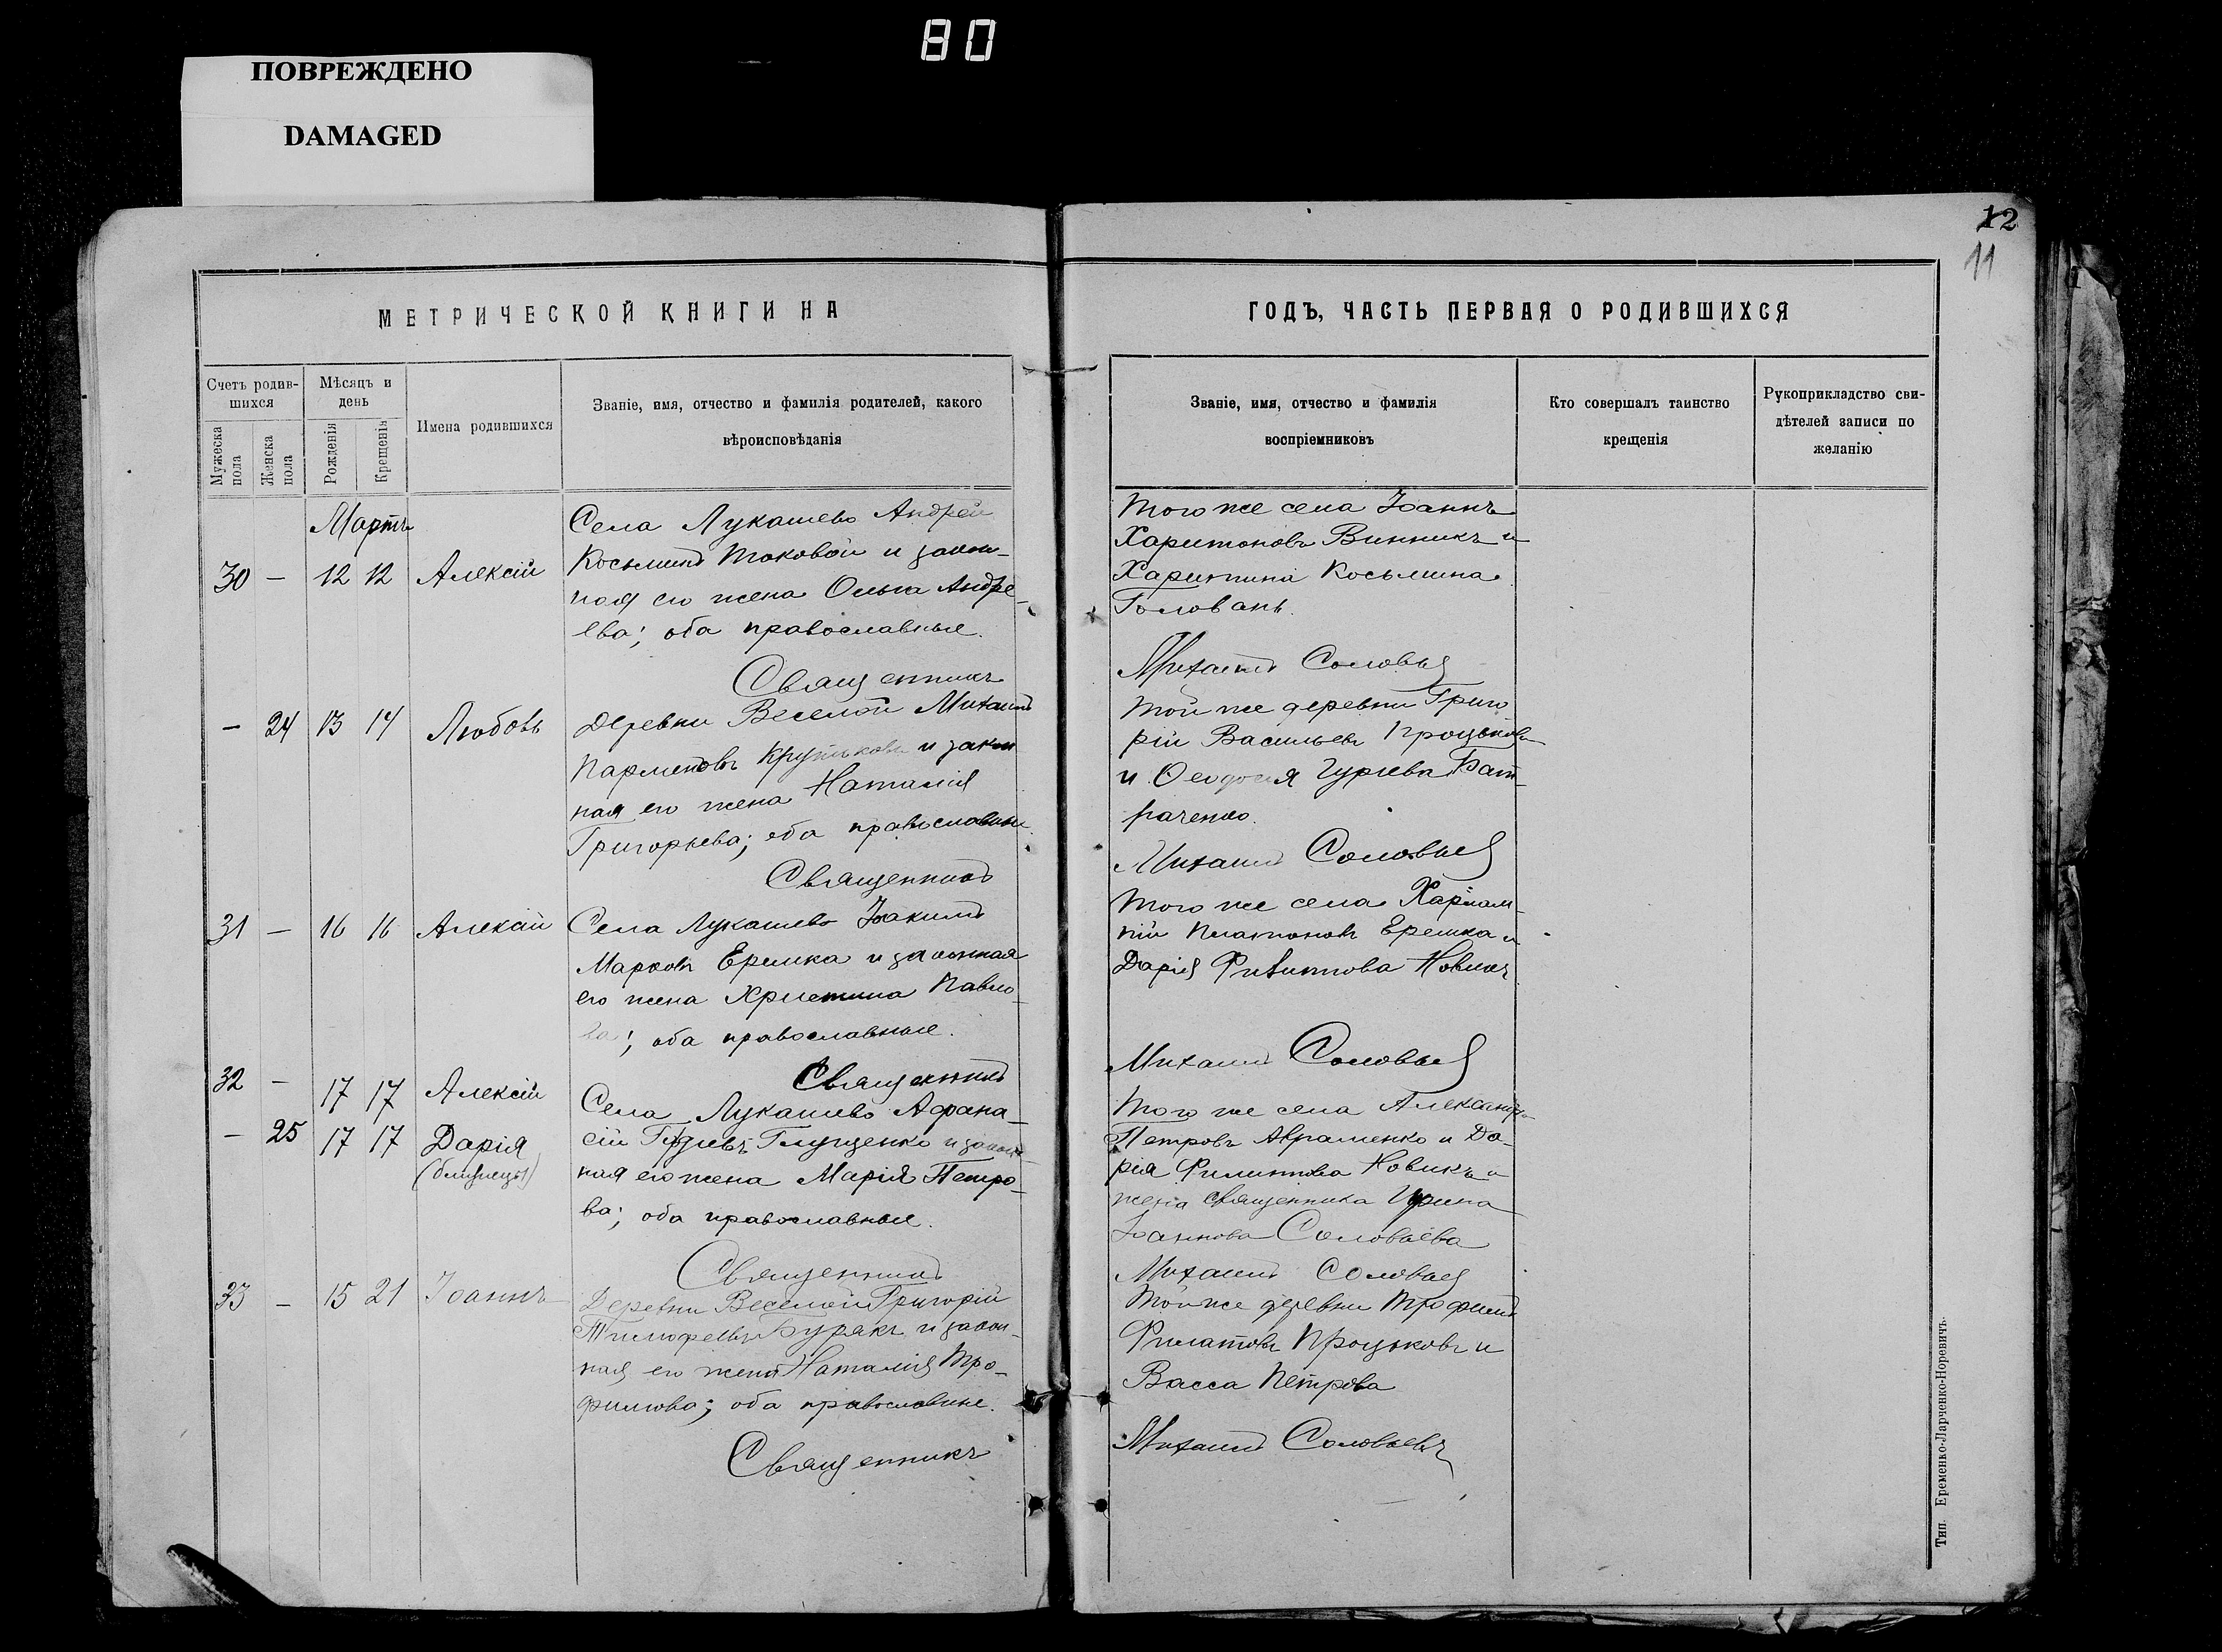 80
ПОВРЕЖДЕНО
DAMAGED
12
11
МЕТРИЧЕСКОЙ КНИГИ НА
Счетъ родив-
шихся
Мѣсяцъ и
день
Мужеска
пола
Женска
пола
Рожденія
Крещенія
Имена родившихся
Званіе, имя, отчество и фамилія родителей, какого
вѣроисповѣданія
Мартъ
30 — 12 12 Алексій
Села Лукашево Андрей
Косьминъ Токовой и закон-
ная его жена Ольга Андре-
ева; оба православные.
Священникъ
— 24 13 14 Любовь
Деревни Веселой Михаилъ
Парменовъ и закон
ная его жена Наталія
Григорьева; оба православные.
Священникъ
31 — 16 16 Алексій
Села Лукашево Іоакимъ
Марковъ Ерешка и законная
его жена Христина Павло-
ва; оба православные.
Священникъ
32 — 17 17 Алексій
— 25 17 17 Дарія
(близнецы)
Села Лукашево Афана-
сій Глущенко и закон-
ная его жена Марія Петро-
ва; оба православные.
Священникъ
33 — 15 21 Іоаннъ
Деревни Веселой Григорій
Тимофеевъ Бурякъ и закон-
ная его жена Наталія Тро-
фимова; оба православные.
Священникъ
ГОДЪ, ЧАСТЬ ПЕРВАЯ О РОДИВШИХСЯ
Званіе, имя, отчество и фамилія
воспріемниковъ
Кто совершалъ таинство
крещенія
Рукоприкладство сви-
дѣтелей записи по
желанію
Того же села Іоаннъ
Харитоновъ Винникъ и
Харитина Косьмина
Головань.
Михаилъ Соловьевъ
Той же деревни Григо
рій Васильевъ Процьковъ
и Ѳеодосія Гуріева Бат-
раченко.
Михаилъ Соловьевъ
Того же села Харлам-
пій Платоновъ Ерешка и
Дарія Филиппова Новикъ
Михаилъ Соловьевъ
Того же села Александръ
Петровъ Авраменко и Да-
рія Филиппова Новикъ и
жена священника Ирина
Іоаннова Соловьева
Михаилъ Соловьевъ
Той же деревни Трофимъ
Филатовъ Процьковъ и
Васса Петрова
Михаилъ Соловьевъ
Тип. Еременко-Ларченко-Норевичъ.